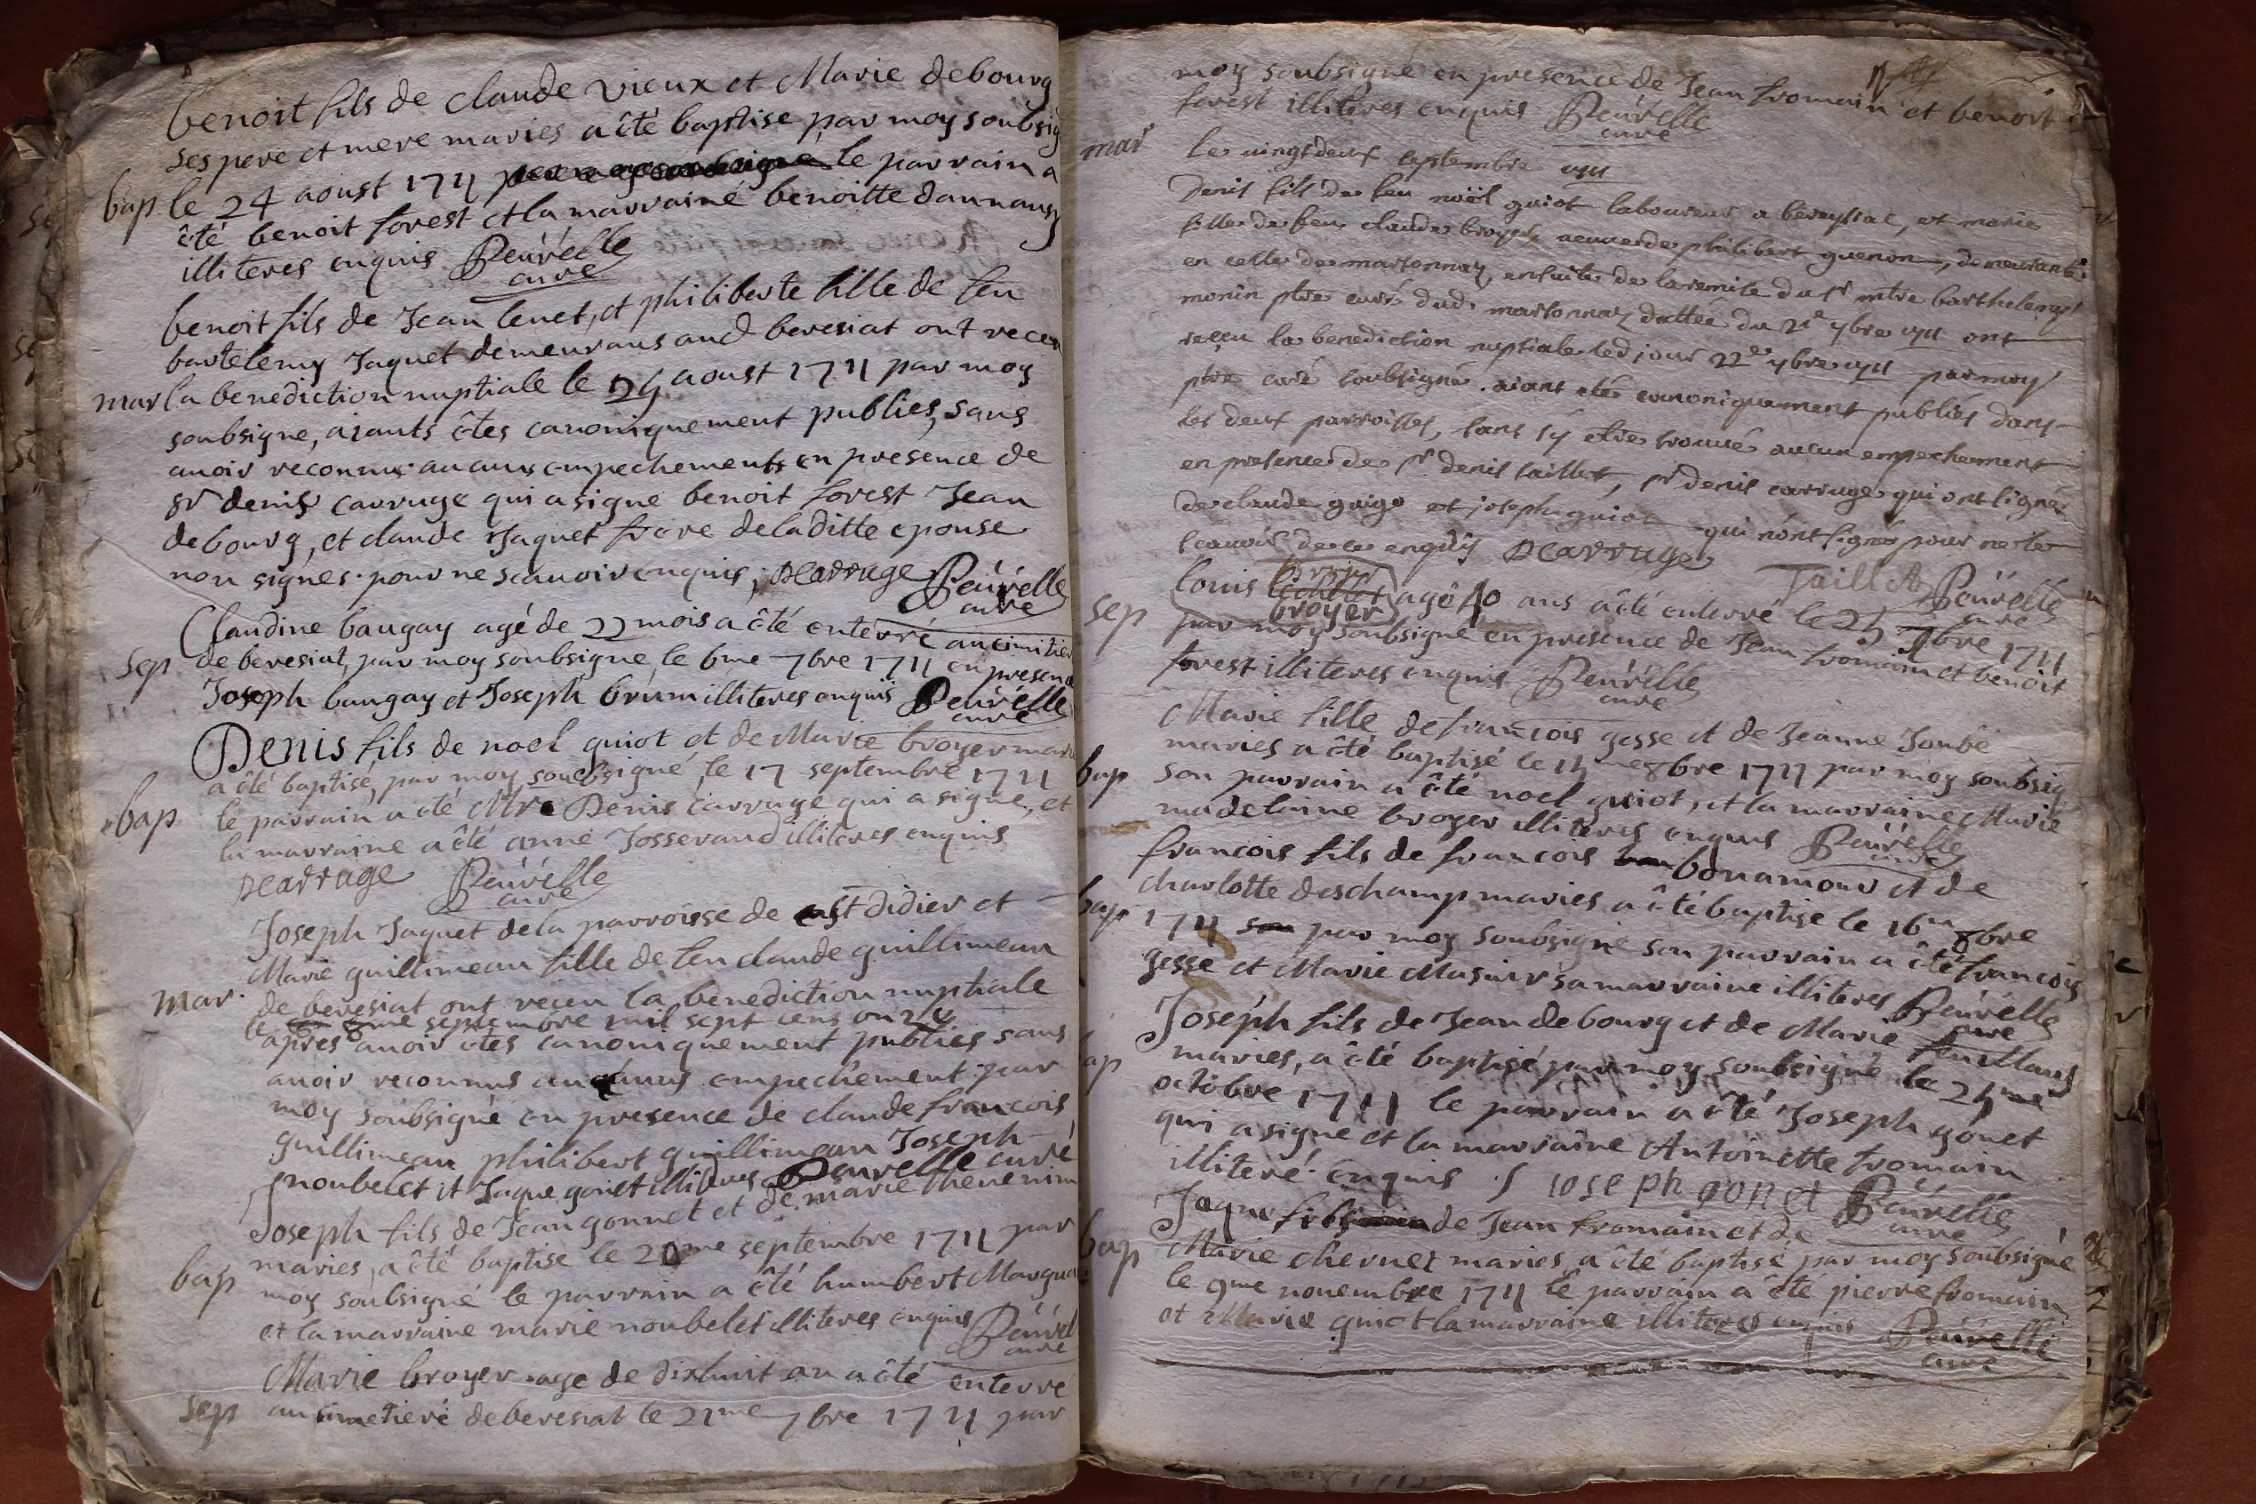 benoit fils de claude vieux et Marie debourg
ses pere et mere maries a êté baptise par moy soubsig
bap le 24 aoust 1711 le parrain a
êté benoit forest et la marraine benoitte dannansy
illiteres enquis Peuvelle
curé
benoit fils de Jean lenet, et philiberte fille de feu
bartelemy Jaquet demeurans aud beresiat ont receu
mar la benediction nuptiale le aoust 1711 par moy
soubsigne, aiants êtes canoniquement publies, sans
auoir reconnus aucuns empechements en presence de
sr denis carruge qui a signe benoit forest Jean
debourg, et claude Jaquet frere de laditte epouse
non signes pour ne scauoir enquis, DCarruge Peuvelle
cure
Claudine baugay agé de 22 mois a êté enterré au cimitier
sep de beresiat, par moy soubsigne le 6me 7bre 1711 en presence
Joseph baugay et Joseph brun illiteres enquis Peuvelle
cure
Denis fils de noel guiot et de Marie broyer mari
a êté baptisé, par moy soubsigné le 17 septembre 1711
bap le parrain a êté Mre Denis Carruge qui a signe, et
la marraine a êté anne Josserand illiteres enquis
DCarruge Peuvelle
cure
Joseph Jaquet de la parroisse de st didier et
Marie guillimeau fille de feu claude guillimeau
mar. de beresiat ont receu la benediction nuptiale
le septembre mil sept cens onze
apres auoir êtes canoniquement publies sans
auoir reconnus aucuns empechement par
moy soubsigné en presence de claude francois
guillimeau philibert guillimeau Joseph
noubelet et Jaque gonet illiteres Peuvelle curé
Joseph fils de Jean gonnet et de marie thevenin
maries, a êté baptise le 20me septembre 1711 par
bap moy soubsigné le parrain a êté humbert Margua
et la marraine marie noubelet illiteres enquis Peuvel
cure
Marie broyer age de dixhuit an a êté enterré
sep au cimetieré de beresiat le 21me 7bre 1711 par
moy soubsigné en presence de Jean fromain et benoit
forest illiteres enquis Peuvelle
curé
mar le vingt deux septembre 1711
Denis fils de feu noël guiot laboureur a béreysiat, et marie
fille de feu claude broyer, demeurante
en celle de martonnay, ensuite de la remise du sr mtre barthelemy
monin ptre curé dud. martonnay dattée du 21e 7bre 1711 ont
reçeu la benediction nuptiale led jour 22e 7bre 1711 par moy
ptre curé soubsigné. aiant etés canoniquement publiés dans
les deux parroisses, sans sy etre trouué aucun empechement
en presence de sr denis taillet, sr denis carruge qui ont signé
de claude guigo et joseph guiot qui n'ont signé pour ne le
scauoir de ce enquis DCarruge
Taillet Peuvelle
cure
sep louis broyer agé 40 ans a êté enterré le 25 7bre 1711
par moy soubsigné en presence de Jean fromain et benoit
forest illiteres enquis Peuvelle
cure
Marie fille de francois gesse et de Jeanne Joubé
maries a êté baptisé le 8bre 1711 par moy soubsig
bap son parrain a êté noel guiot, et la marraine Marie
madelaine broyer illiteres enquis Peuvelle
cure
francois fils de francois bonamour et de
charlotte deschamp maries a êté baptise le 16me 8bre
bap 1711 par moy soubsigné son parrain a êté francois
gesse et Marie Masuir sa marraine illiteres Peuvelle
cure
Joseph fils de Jean debourg et de Marie feuillans
bap maries, a êté baptisé par moy soubsigné le
octobre 1711 le parrain a êté Joseph gonet
qui a signe et la marraine Antoinette fromain
illiteré enquis joseph gonet Peuvelle
cure
Jaque fils de Jean fromain et de
bap Marie chernet maries a êté baptisé par moy soubsigne
le 9me nouembre 1711 le parrain a êté pierre fromain
et Marie guiot la marraine illiteres enquis Peuvelle
cure